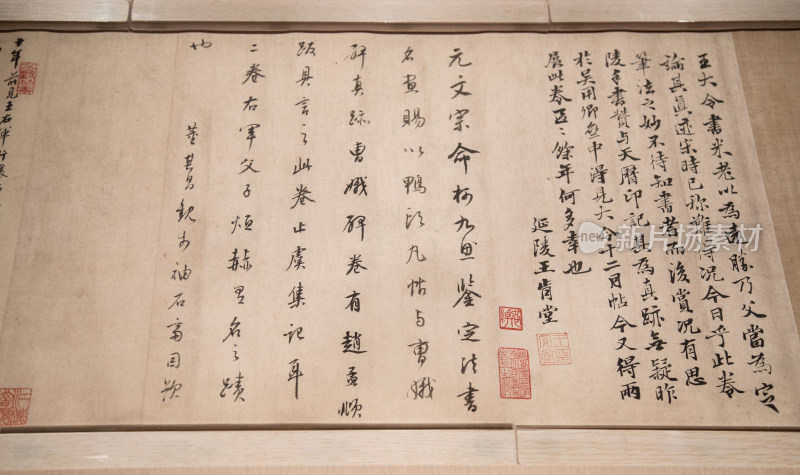 王大令書米老以為走勝乃父當為定
論其真迹宋時已称難得況今日乎此卷
筆法之妙不待知書者而後賞況有思
陵手書贊与天曆印記其為真跡無疑昨
於吴用卿齋中得見大令十二月帖今又得両
展此卷區區餘年何多幸也
延陵王肯堂
元文宗命柯九思鑒定法書
名画賜以鴨頭丸帖与曹娥
碑真跡曹娥碑卷有趙孟頫
跋具言之此卷止虞集記耳
二卷右軍父子烜赫有名之蹟
也
董其昌觀於袖石齋因題
十年前見王右軍